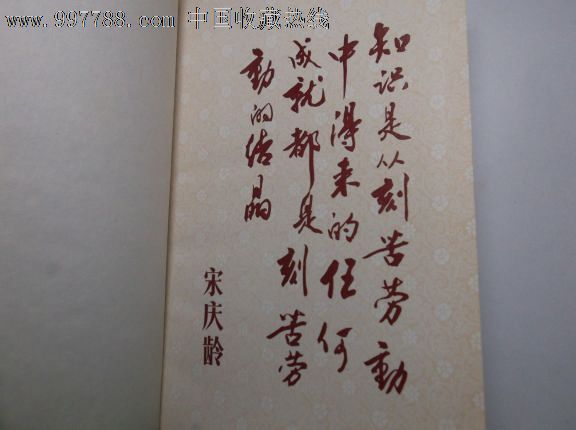 www.997788.com 中国收藏热线
知识是从刻苦劳動
中得来的任何
成就都是刻苦劳
動的结晶
宋庆龄